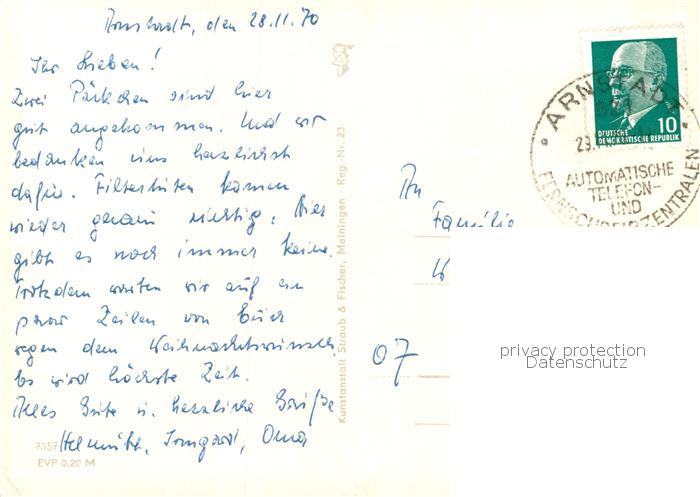 Arnstadt, den 28.11.70
Ihr Lieben!
Zwei Päckchen sind hier
gut angekommen. Und wir
bedanken uns herzlichst
dafür. Filtertüten kamen
wieder genau richtig, hier
gibt es noch immer keine.
Trotzdem warten wir auf ein
paar Zeilen von Euch
wegen dem Weihnachtswunsch.
Es wird höchste Zeit.
Alles Gute u. herzliche Grüße
Helmuth, Irmgard, Oma
7057
EVP 0,20 M
Kunstanstalt Straub & Fischer, Meiningen Reg.-Nr. 23
10
DEUTSCHE
DEMOKRATISCHE REPUBLIK
ARNSTADT
AUTOMATISCHE
TELEFON-
UND
FERNSCHREIBZENTRALEN
An
Familie
W
07
privacy protection
Datenschutz